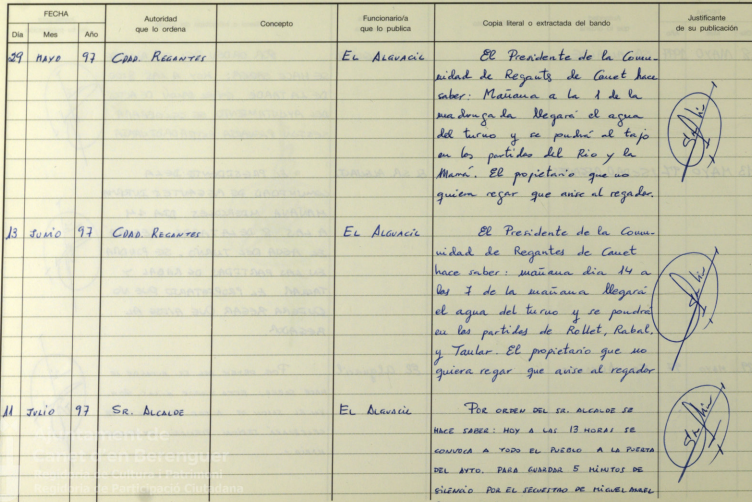 FECHA
Autoridad
que lo ordena
Concepto
Funcionario/a
que lo publica
Copia literal o extractada del bando
Justificante
de su publicación
Día Mes Año
29 MAYO 97 CDAD. REGANTES EL ALGUACIL El Presidente de la Comu-
nidad de Regants de Canet hace
saber: Mañana a la 1 de la
madrugada llegará el agua
del turno y se pondrá al tajo
en las partidas del Rio y la
Marná. El propietario que no
quiera regar que avise al regador.
13 JUNIO 97 CDAD. REGANTES EL ALGUACIL El Presidente de la Comu-
nidad de Regantes de Canet
hace saber: mañana dia 14 a
las 7 de la mañana llegará
el agua del turno y se pondrá
en las partidas de Rollet, Rabal,
y Taular. El propietario que no
quiera regar que avise al regador
11 JULIO 97 SR. ALCALDE EL ALGUACIL POR ORDEN DEL SR. ALCALDE SE
HACE SABER: HOY A LAS 13 HORAS SE
CONVOCA A TODO EL PUEBLO A LA PUERTA
DEL AYTO. PARA GUARDAR 5 MINUTOS DE
SILENCIO POR EL SECUESTRO DE MIGUEL ANGEL